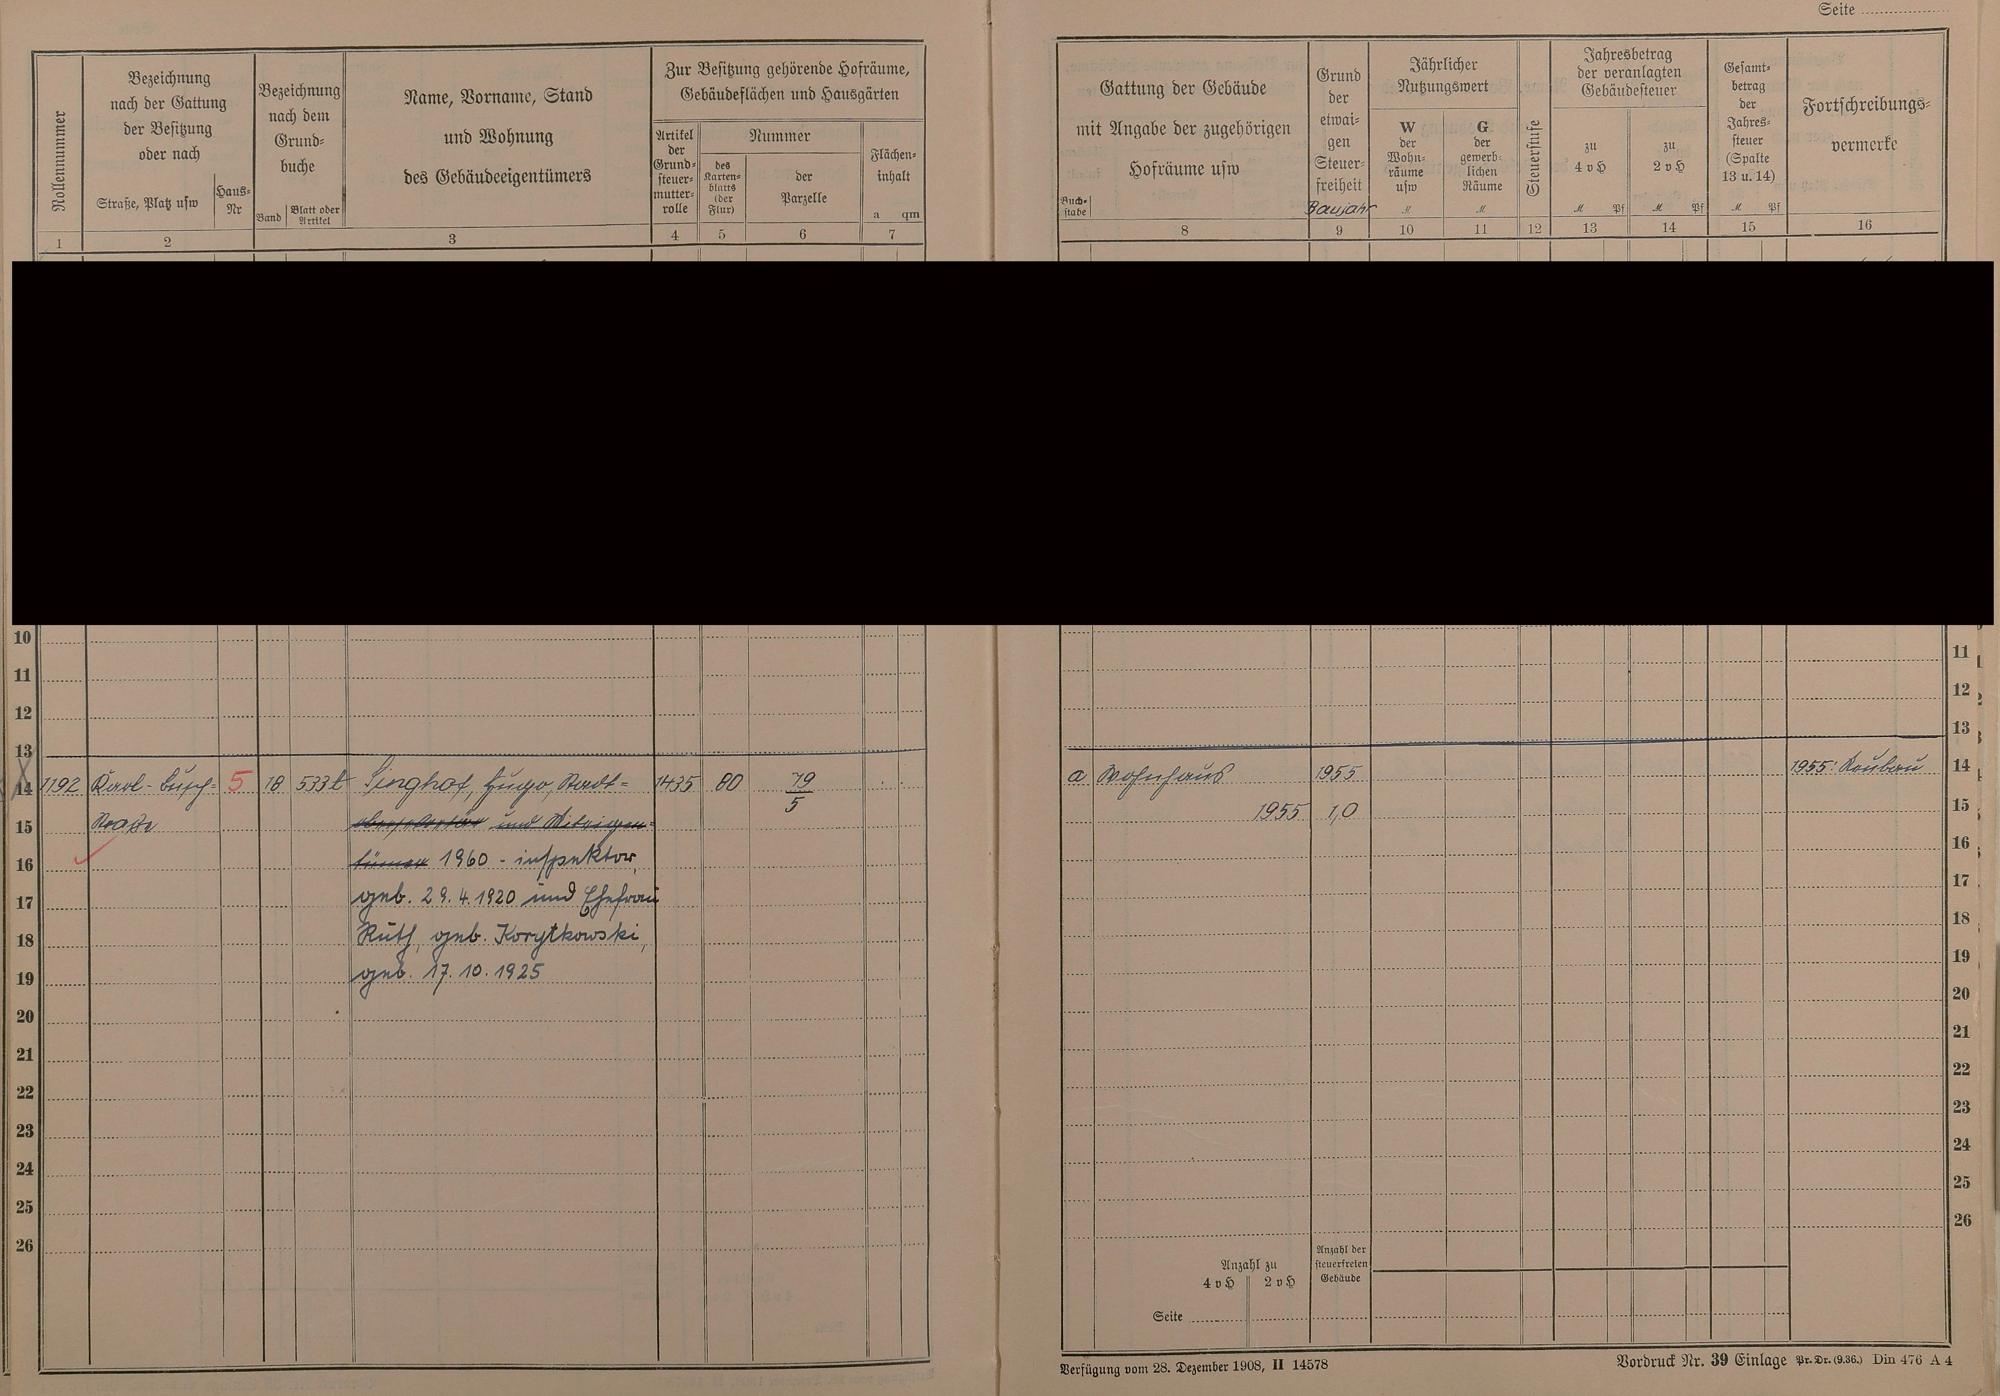 Seite
Rollennummer
Bezeichnung
nach der Gattung
der Besitzung
oder nach
Straße, Platz usw
Haus=
Nr
Bezeichnung
nach dem
Grund=
buche
Band
Blatt oder
Artikel
Name, Vorname, Stand
und Wohnung
des Gebäudeeigentümers
Zur Besitzung gehörende Hofräume,
Gebäudeflächen und Hausgärten
Artikel
der
Grund=
steuer=
mutter=
rolle
Nummer
des
Karten=
blatts
(der
Flur)
der
Parzelle
Flächen=
inhalt
a qm
1 2 3 4 5 6 7
Gattung der Gebäude
mit Angabe der zugehörigen
Hofräume usw
Buch=
stabe
Grund
der
etwai=
gen
Steuer=
freiheit
Baujahr
Jährlicher
Nutzungswert
W
der
Wohn=
räume
usw
ℳ
G
der
gewerb=
lichen
Räume
ℳ
Steuerstufe
Jahresbetrag
der veranlagten
Gebäudesteuer
zu
4 v H
ℳ Pf
zu
2 v H
ℳ Pf
Gesamt=
betrag
der
Jahres=
steuer
(Spalte
13 u. 14)
ℳ Pf
Fortschreibungs=
vermerke
8 9 10 11 12 13 14 15 16
10
11
12
13
14 1192 Karl-Busch= 5 18 533 Singhof, Hugo, Stadt= 1435 80 79/5
15 Straße obersekretär und Miteigen=
16 tümer 1960 - inspektor,
17 geb. 29.4.1920 und Ehefrau
18 Ruth, geb. Korytkowski,
19 geb. 17.10.1925
20
21
22
23
24
25
26
11
12
13
a Wohnhaus 1955 1955: Neubau 14
1955 1,0 15
16
17
18
19
20
21
22
23
24
25
26
Anzahl zu
4 v H 2 v H
Anzahl der
steuerfreien
Gebäude
Seite
Verfügung vom 28. Dezember 1908, II 14578
Vordruck Nr. 39 Einlage Pr. Dr. (9.36.) Din 476 A 4